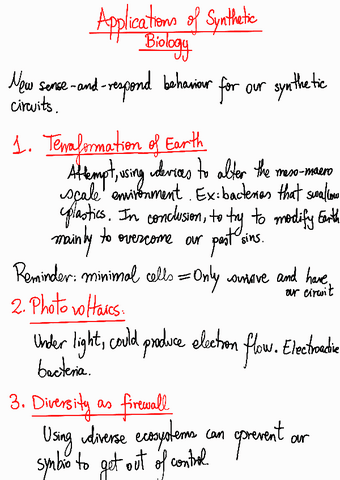 Applications of Synthetic
Biology
New sense-and-respond behaviour for our synthetic
circuits.
1. Terraformation of Earth
Attempt, using devices to alter the meso-macro
scale environment. Ex: bacterias that swallow
plastics. In conclusion, to try to modify Earth
mainly to overcome our past sins.
Reminder: minimal cells = Only survive and have
our circuit
2. Photovoltaics.
Under light, could produce electron flow. Electroactive
bacteria.
3. Diversity as firewall
Using diverse ecosystems can prevent our
synbio to get out of control.